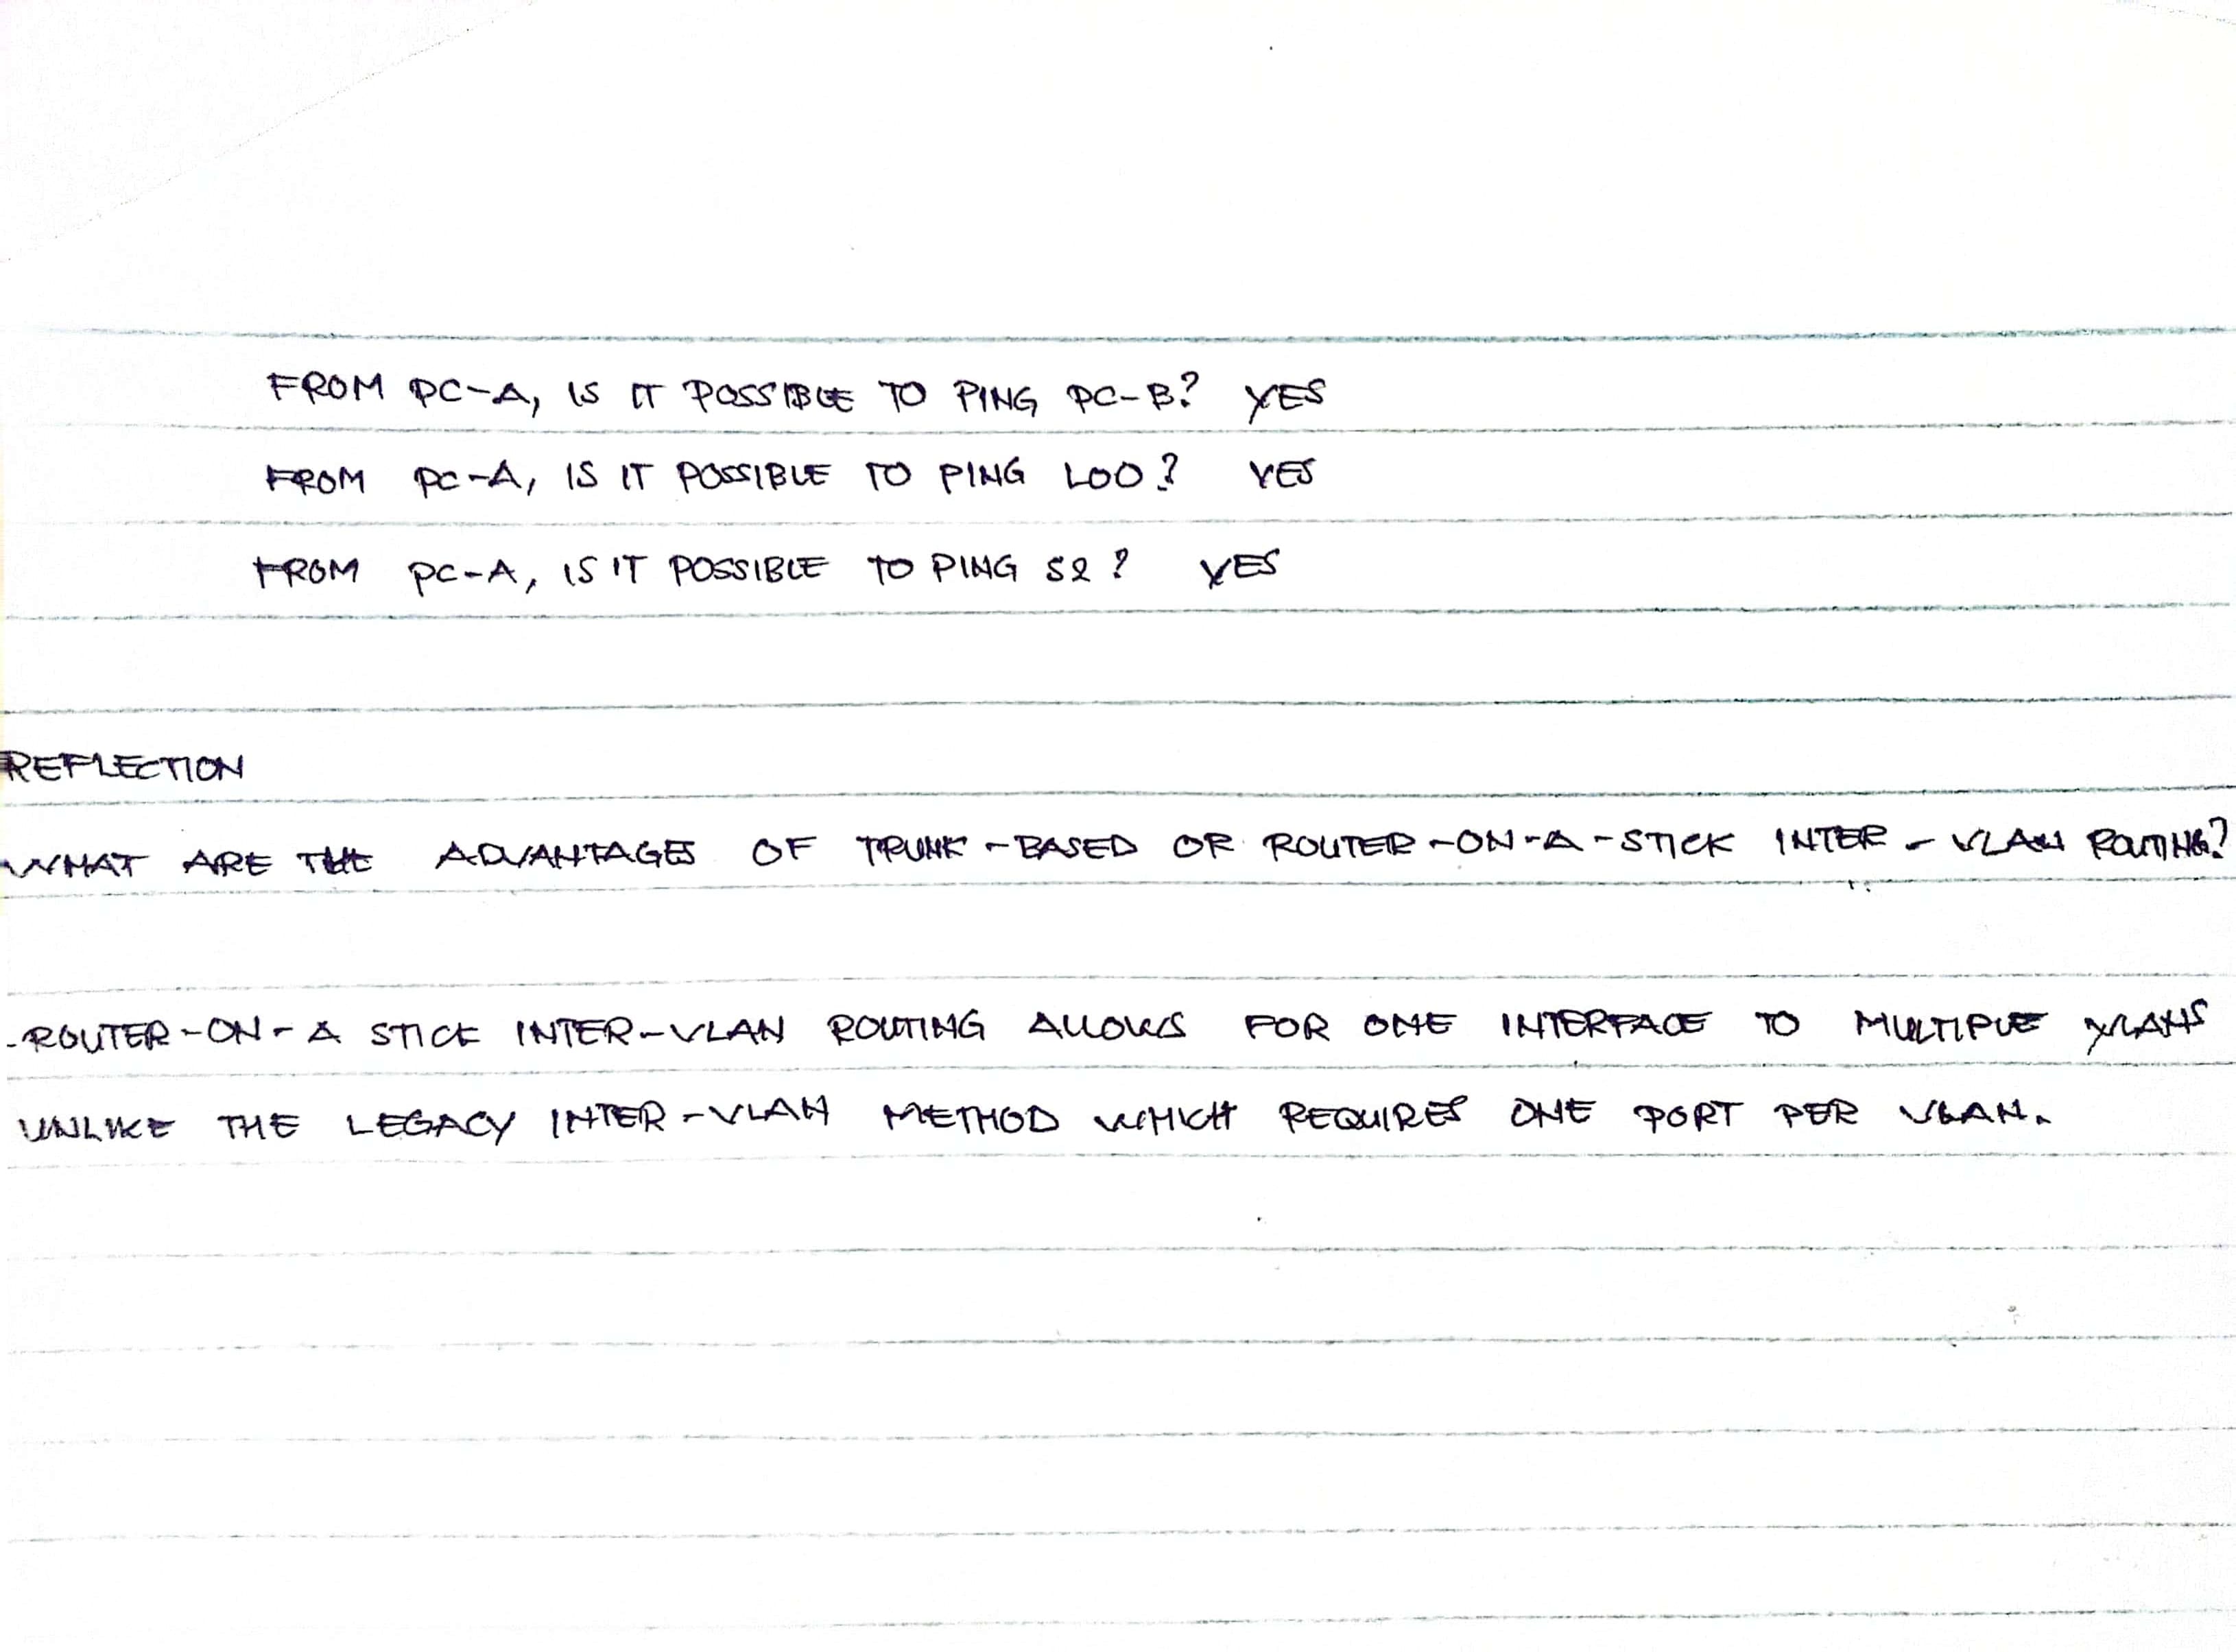 FROM PC-A, IS IT POSSIBLE TO PING PC-B? YES
FROM PC-A, IS IT POSSIBLE TO PING LOO? YES
FROM PC-A, IS IT POSSIBLE TO PING S2? YES
REFLECTION
WHAT ARE THE ADVANTAGES OF TRUNK-BASED OR ROUTER-ON-A-STICK INTER-VLAN ROUTING?
-ROUTER-ON-A STICK INTER-VLAN ROUTING ALLOWS FOR ONE INTERFACE TO MULTIPLE VLANS
UNLIKE THE LEGACY INTER-VLAN METHOD WHICH REQUIRES ONE PORT PER VLAN.